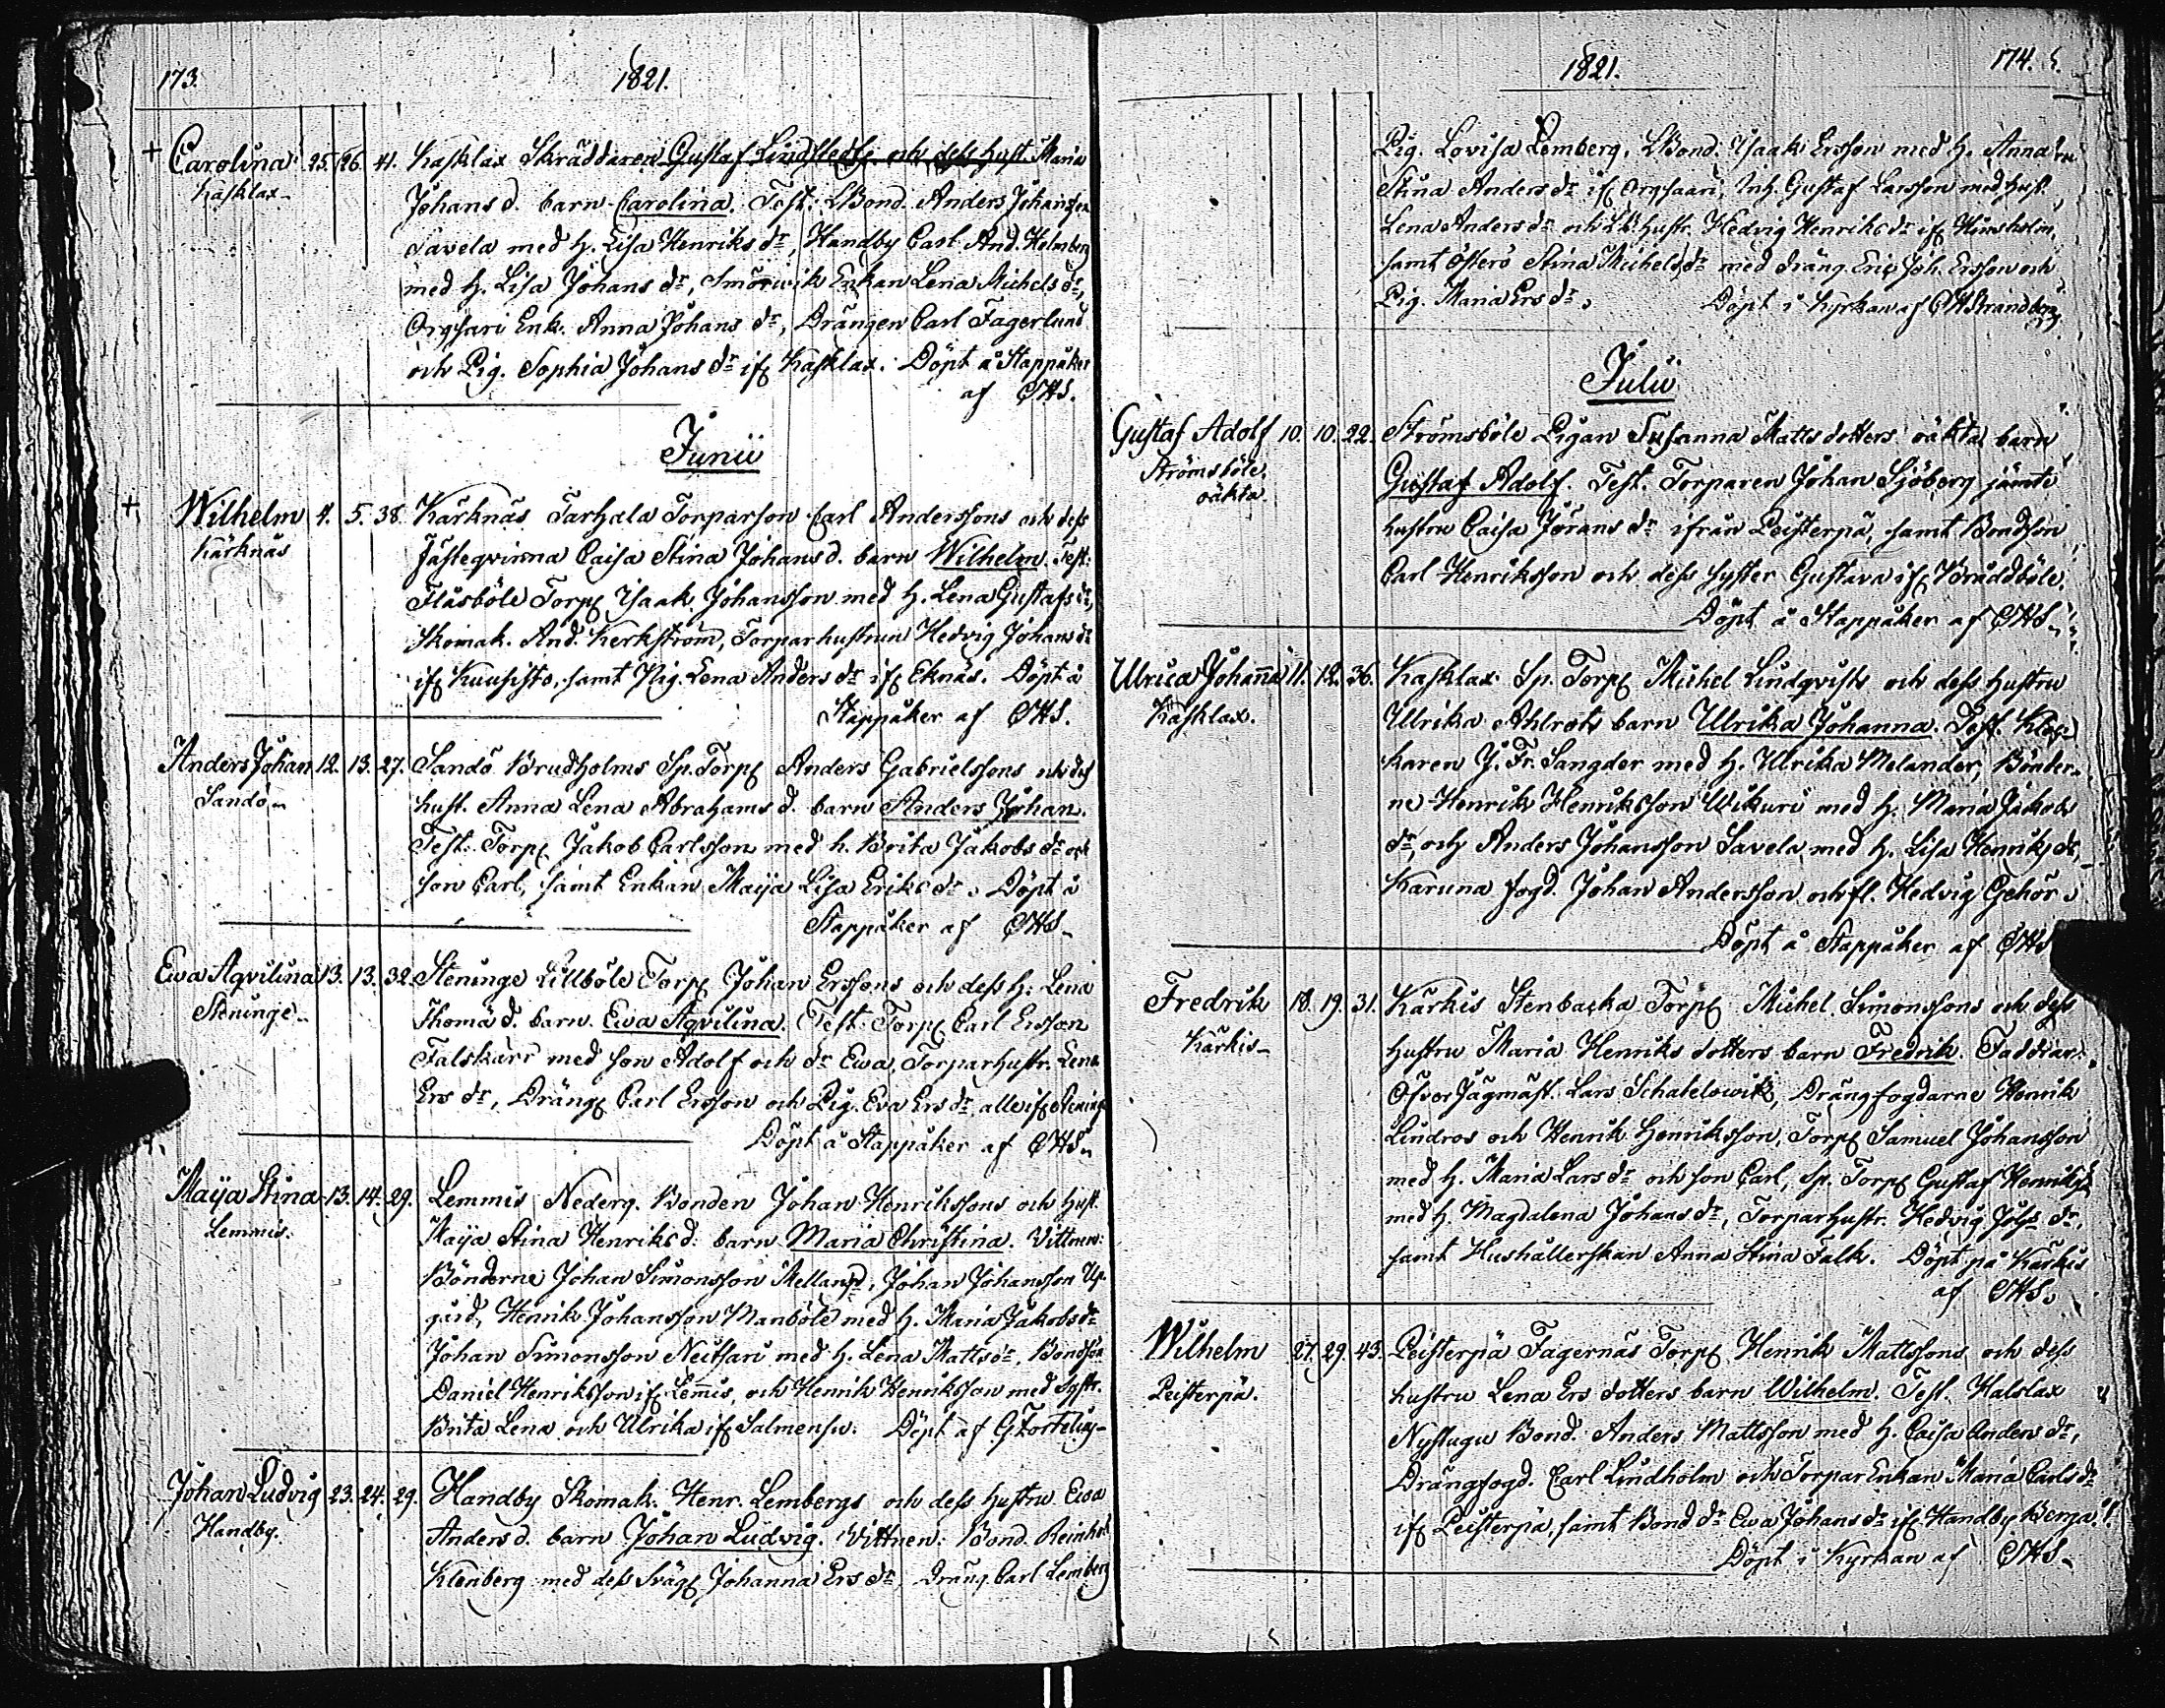 173.
1821.
+ Carolina 25. 26. 41. Kasklax Skräddaren Gustaf Lindstedts och dess Hust. Maria
Kasklax Johans d. barn Carolina. Test: LBond. Anders Johansson
Savela med H. Lisa Henriks dr, Handby Carl And. Holmberg
med H. Lisa Johans dr, Smörwik Enkan Lena Michels dr,
Orgsari Enk. Anna Johans dr, Drängen Carl Fagerlund
och Pig. Sophia Johans dr if. Kasklax. Döpt å Stappåker
af CHS.
Junii
+ Wilhelm 4. 5. 38. Kärknäs Tarhala Torparson Carl Anderssons och dess
Kärknäs Fästeqvinna Caisa Stina Johans d. barn Wilhelm. Test:
Fläsböle Torp. Isaak Johansson med H. Lena Gustafs dr,
Skomak. And. Kerkström, Torparhustrun Hedvig Johans dr
if. Kuusisto, samt Pig. Lena Anders dr if. Eknäs. Döpt å
Stappåker af CHS.
Anders Johan 12. 13. 27. Sandö Brudholms Sp. Torp. Anders Gabrielssons och dess
Sandö hust. Anna Lena Abrahams d. barn Anders Johan.
Test: Torp. Jakob Carlsson med h. Brita Jakobs dr och
son Carl, samt Enkan Maija Lisa Eriks dr. Döpt å
Stappåker af CHS
Ewa Aqvilina 13. 13. 32. Steninge Lillböle Torp. Johan Erssons och dess H. Lena
Steninge Thomä d. barn Ewa Aqvilina. Test: Torp. Carl Ersson
Falskärr med son Adolf och dr Ewa, Torparhustr. Lena
Ers dr, Dräng. Carl Ersson och Pig. Eva Ers dr alle if. Steninge
Döpt å Stappåker af CHS
Maija Stina 13. 14. 29. Lemmis Nederg. Bonden Johan Henrikssons och Hust.
Lemmis. Maija Stina Henriks d: barn Maria Christina. Vittnen:
Bönderne Johan Simonsson Melland, Johan Johansson Up-
gård, Henrik Johansson Manböle med H. Maria Jakobs dr
Johan Simonsson Neitsari med H. Lena Matts dr, Bondson
Daniel Henriksson if. Lemis, och Henrik Henriksson med Systr.
Brita Lena och Ulrika if. Salmensu. Döpt af G. Fortelius
Johan Ludvig 23. 24. 29. Handby Skomak. Henr. Lembergs och dess hustru Ewa
Handby. Anders d. barn Johan Ludvig. Vittnen: Bond. Reinhold
Klenberg med dess Sväg. Johanna Ers dr, Dräng. Carl Lemberg
1821.
174.
Pig. Lovisa Lemberg, LBond. Isaak Ersson med H. Anna
Stina Anders dr if. Orgsaari, Inh. Gustaf Larsson med Hust.
Lena Anders dr och Lb. hustr. Hedvig Henriks dr if.
samt Österö Stina Michels dr med dräng. Eric Joh. Ersson och
Pig. Maria Ers dr. Döpt i Kyrkan af CHStrandberg
Julii
Gustaf Adolf 10. 10. 22. Strömsböle Pigan Susanna Matts dotters oäkta barn
Strömsböle. Gustaf Adolf. Test. Torparen Johan Sjöberg jämte
oäkta. hustru Caisa Jörans dr ifrån Peisterpä, samt Bondson
Carl Henriksson och dess syster Gustava if. Bruddböle.
Döpt å Stappåker af CHS
Ulrica Johanna 11. 12. 36. Kasklax Sp. Torp. Michel Lindqvists och dess hustru
Kasklax. Ulrika Ahlrots barn Ulrika Johanna. Test. Kloc-
karen J. Fr. Sangder med H. Ulrika Melander, Bönder-
ne Henrik Henriksson Wikuri med H. Maria Jakobs
dr, och Anders Johansson Savela med H. Lisa Henriks dr,
Karuna fogd. Johan Andersson och fl. Hedvig Gehör.
Döpt å Stappåker af CHS
Fredrik 18. 19. 31. Kärkis Stenbacka Torp. Michel Simonssons och dess
Kärkis hustru Maria Henriks dotters barn Fredrik. Faddrar:
ÖfverJägmäst. Lars Schatelowitz, Drängfogdarne Henrik
Lindros och Henrik Henriksson, Torp. Samuel Johansson
med H. Maria Lars dr och son Carl, Sp. Torp. Gustaf Henriks
med H. Magdalena Johans dr, Torparhustr. Hedvig Johs dr,
samt Hushållerskan Anna Stina Falk. Döpt på Kärkis
af CHS.
Wilhelm 27. 29. 43. Peisterpä Fagernäs Torp. Henrik Mattssons och dess
Peisterpä. hustru Lena Ers dotters barn Wilhelm. Test. Halslax
Nystugu Bond. Anders Mattsson med H. Caisa Anders dr,
Drängfogd. Carl Lindholm och TorparEnkan Maria Carls dr
if. Peisterpä, samt Bond dr Ewa Johans dr if. Handby Benja.
Döpt i Kyrkan af CHS